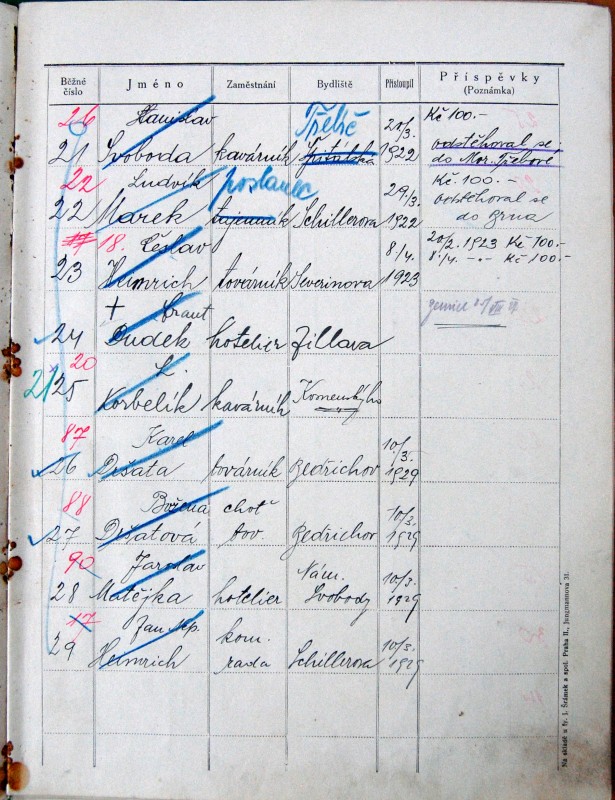 Běžné číslo Jméno Zaměstnání Bydliště Přistoupil Příspěvky (Poznámka)
26 Stanislav Třebíč 20/3. Kč 100.-
21 Svoboda kavárník 1922 odstěhoval se do Mor. Třebové
22 Ludvík poslanec 29/3. Kč. 100.-
22 Marek tajemník Schillerova 1922 odstěhoval se do Brna
18. Česlav 8/4. 20/2. 1923 Kč 100.-
23 Heinrich továrník Severinova 1923 8./4. -.- Kč 100.-
+ Frant
24 Dudek hotelier Zillava
20 L.
21 25 Korbelík kavárník Komenského
87 Karel 10/3.
26 Dršata továrník Bedřichov 1929
88 Božena choť 10/3.
27 Dršatová tov. Bedřichov 1929
90 Jaroslav Nám. 10/3.
28 Matějka hotelier Svobody 1929
17 Jan kom. 10/3.
29 Heinrich rada Schillerova 1929
Na skladě u fy. J. Šrámek a spol. Praha II., Jungmannova 31.